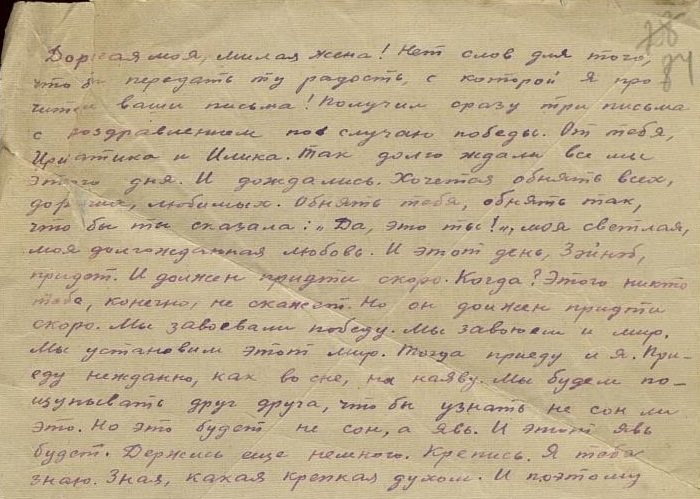 84
Дорогая моя, милая жена! Нет слов для того,
что бы передать ту радость, с которой я про
читал ваши письма! Получил сразу три письма
с поздравлением по случаю победы. От тебя,
и Илика. Так долго ждали все мы
этого дня. И дождались. Хочется обнять всех,
дорогих, любимых. Обнять тебя, обнять так,
что бы ты сказала: „Да, это ты!", моя светлая,
моя долгожданная любовь. И этот день, Зэйнб,
придет. И должен придти скоро. Когда? Этого никто
тебе, конечно, не скажет. Но он должен придти
скоро. Мы завоевали победу. Мы завоюем и мир.
Мы установим этот мир. Тогда приеду и я. При-
еду нежданно, как во сне, на яву. Мы будем по-
щупывать друг друга, что бы узнать не сон ли
это. Но это будет не сон, а явь. И этот явь
будет. Держись еще немного. Крепись. Я тебя
знаю. Зная, какая крепкая духом. И поэтому